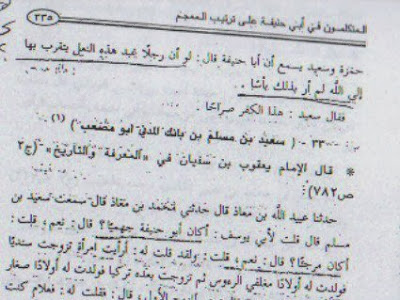 المتكلمون في أبي حنيفة على ترتيب المعجم ٣٣٥
حمزة وسعيد يسمع أن أبا حنيفة قال: لو أن رجلًا عبد هذه النعل يتقرب بها
إلى الله لم أر بذلك بأسًا.
فقال سعيد: هذا الكفر صراحًا.
٣٣ - (سعيد بن مسلم بن بانك المدني أبو مصعب) (١)
* قال الإمام يعقوب بن سفيان في «المعرفة والتاريخ» (ج٢
ص٧٨٢)
حدثنا عبيد الله بن معاذ قال حدثني محمد بن معاذ قال سمعت سعيد بن
مسلم قال قلت لأبي يوسف: أكان أبو حنيفة جهميًا؟ قال: نعم، قلت:
أكان مرجئًا؟ قال: نعم، قلت: ولقد قلت له: أرأيت امرأة تزوجت سنديًا
فولدت له أولادًا مفلفلي الرءوس ثم تزوجت بعده تركيًا فولدت له أولادًا صغار
الأول، قال: فقلت له: فعلام كنت